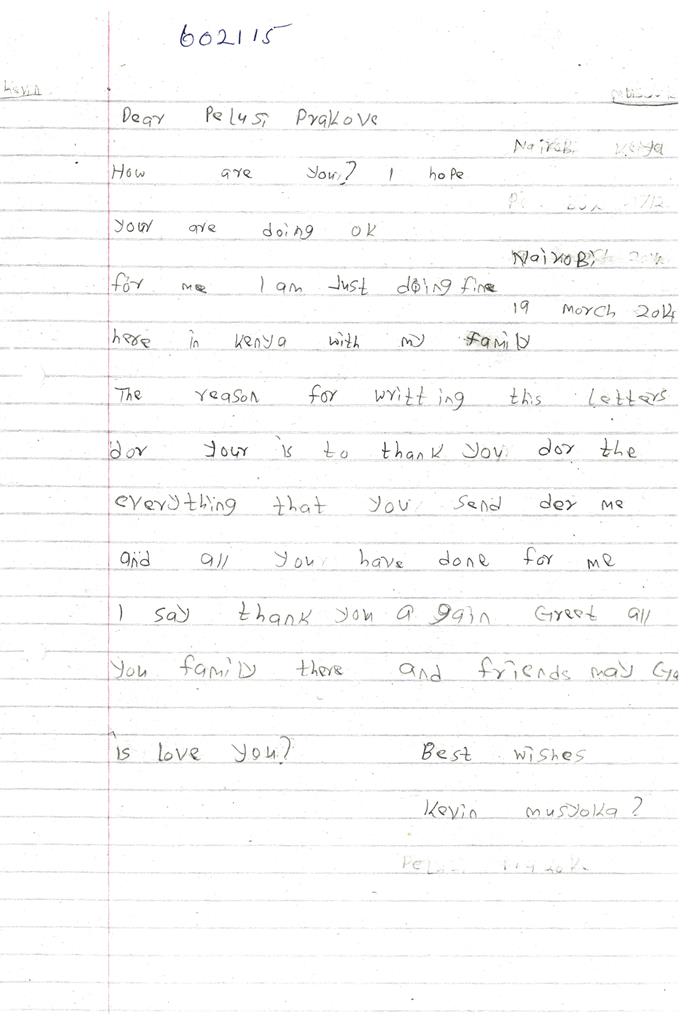 602115
Kevin
Dear Pelusi Prakove
Nairobi Kenya
How are you? I hope
your are doing ok
Nairobi
for me I am Just doing fine
19 March 2014
here in kenya with my family
The reason for writting this letters
dor your is to thank you dor the
everything that you send der me
and all you have done for me
I say thank you a gain Greet all
you family there and friends may
is love you? Best wishes
Kevin musyoka?